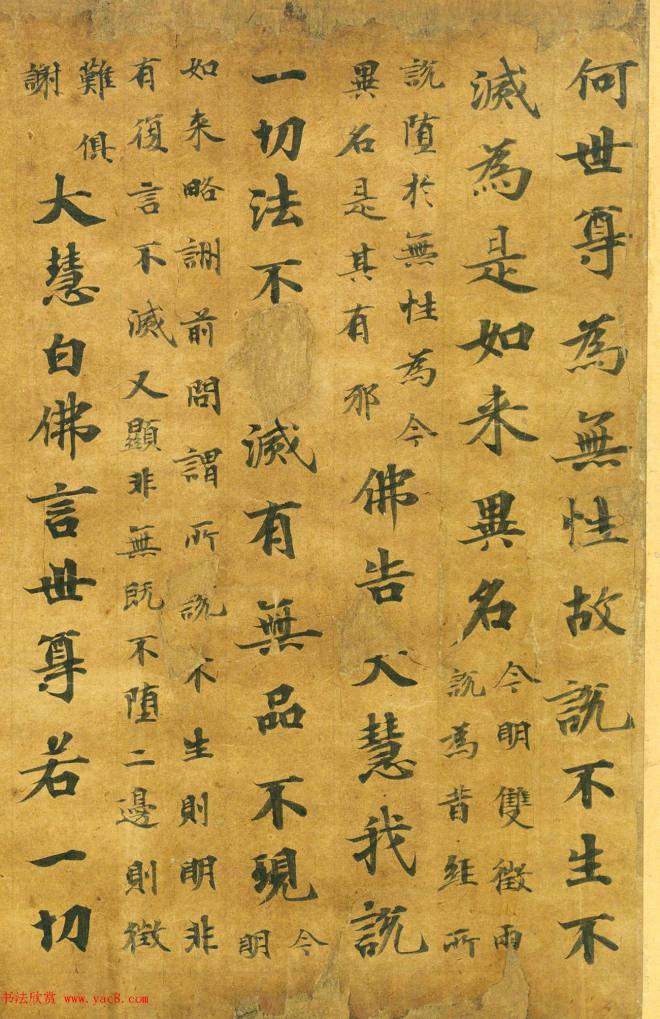 何世尊為無性故說不生不
滅為是如来異名
今明雙徵兩
說為昔經所
說堕於無性為今
異名是其有邪
佛告大慧我說
一切法不滅有無品不現
今
明
如来略詶前問謂所說不生則明非
有復言不滅又顯非無既不堕二邊則徵
難俱
謝
大慧白佛言世尊若一切
书法欣赏 www.yac8.com